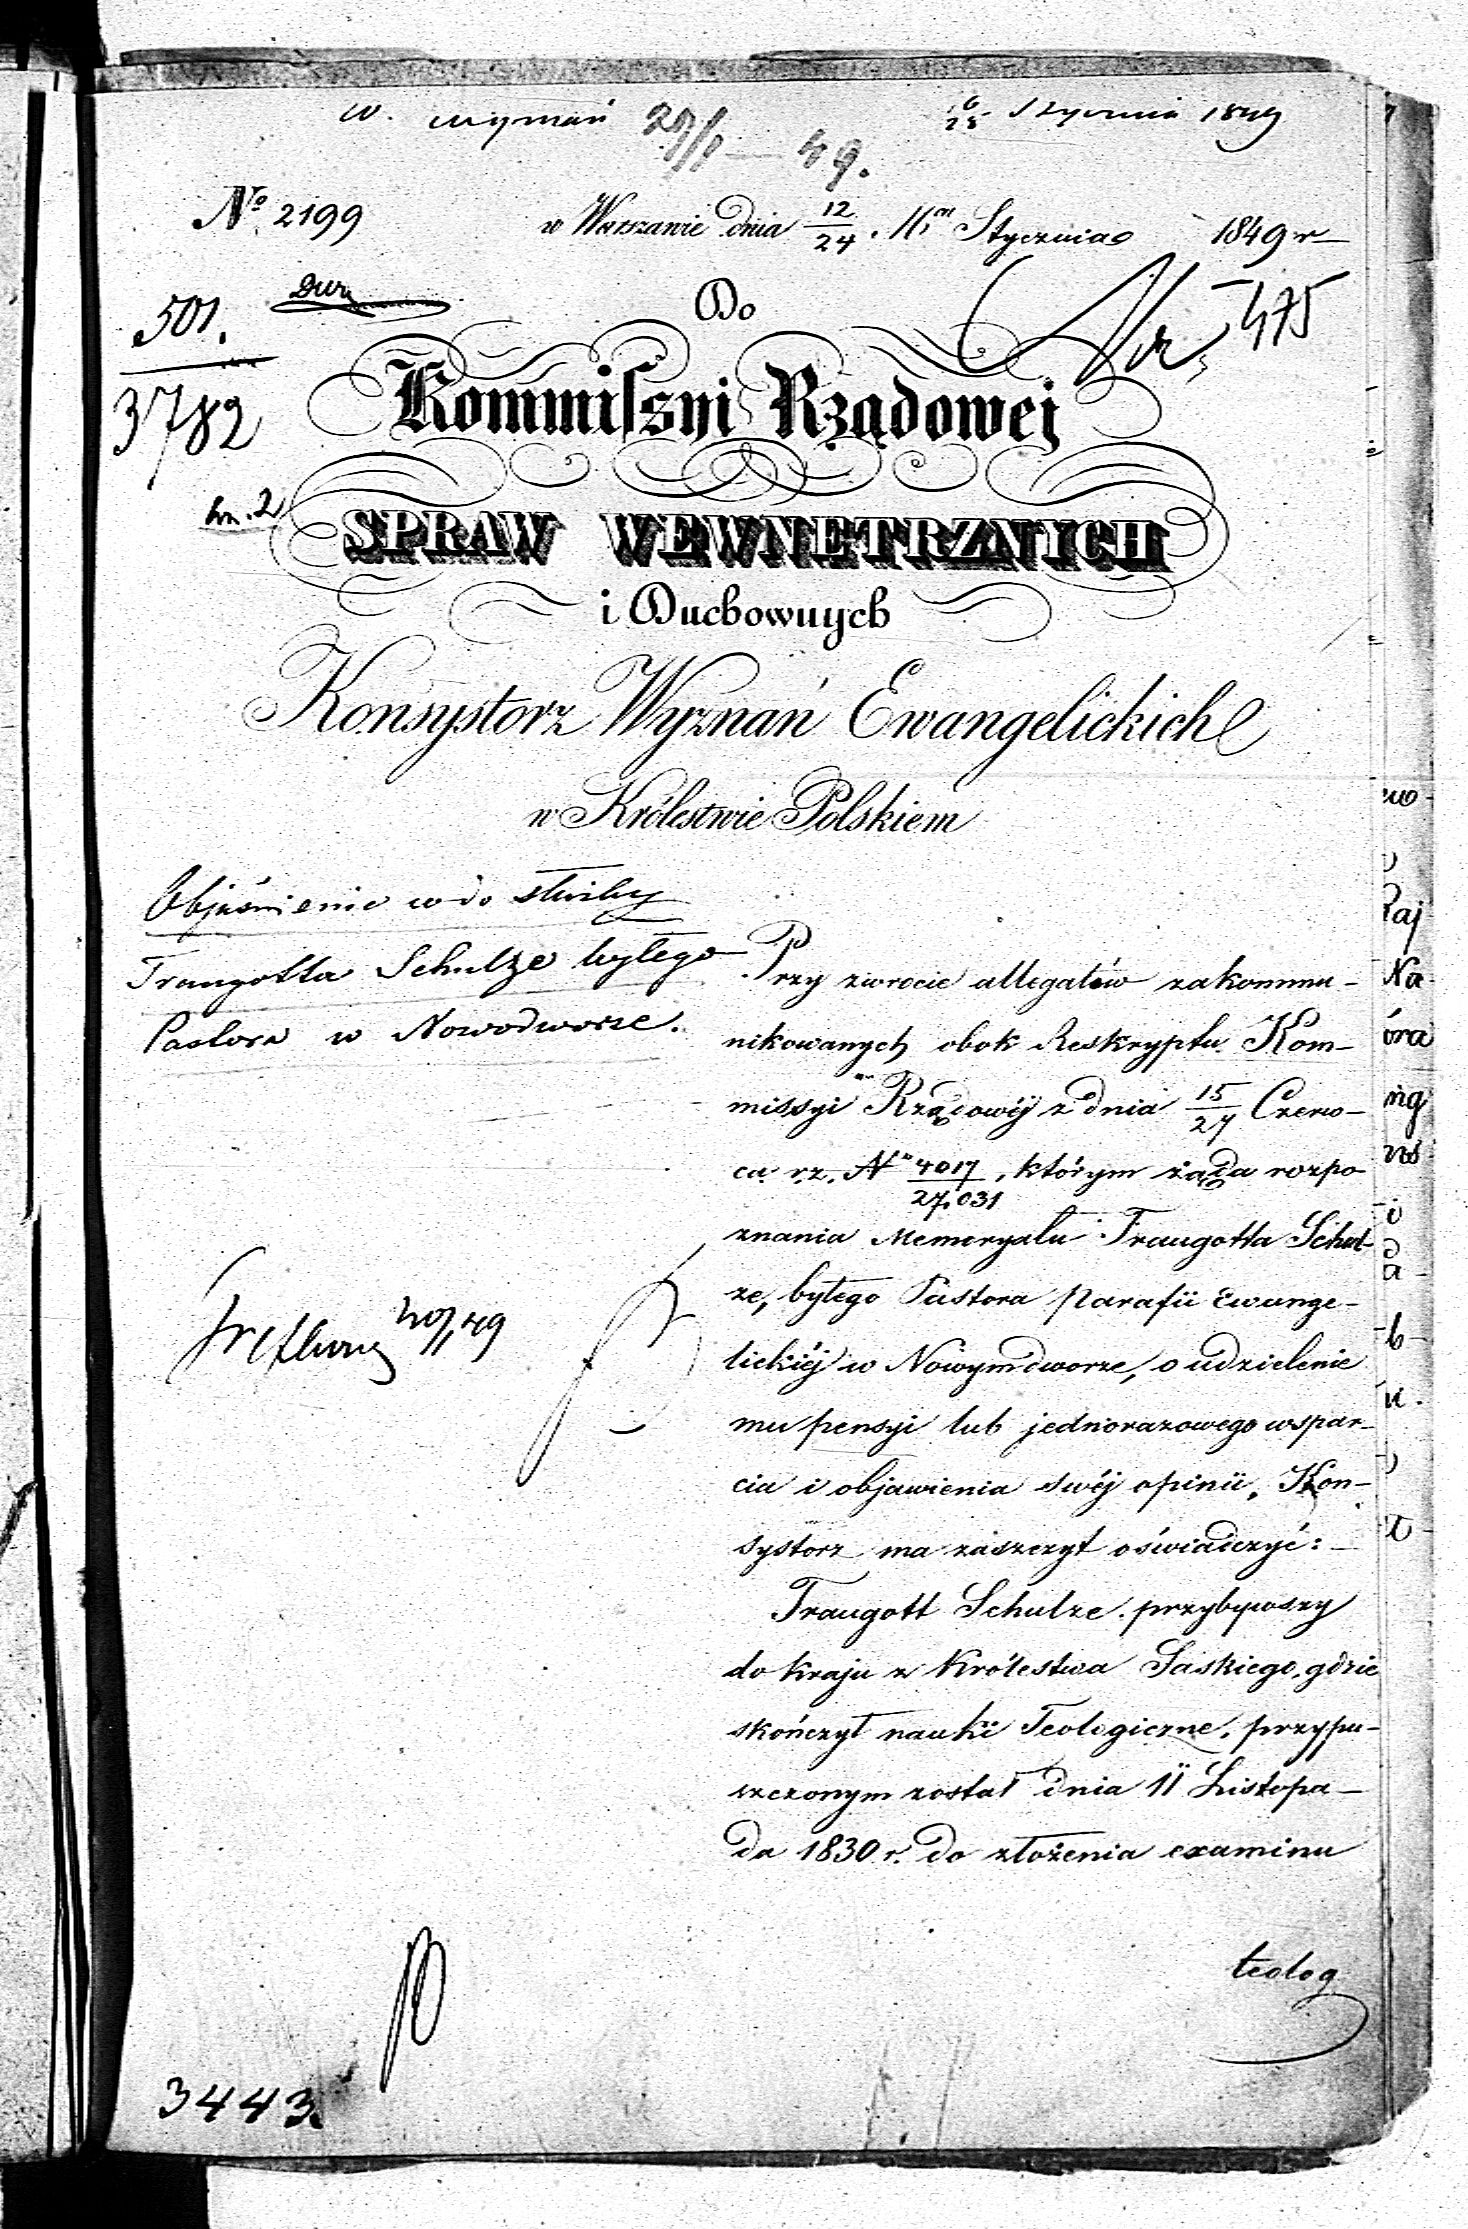 w. wyznań 29/1 — 49. 16/28 Stycznia 1849
No 2199 w Warszawie dnia 12/24. Mca Stycznia 1849 r
501.
3782
Do
Nr 475
Kommissyi Rządowej
SPRAW WEWNETRZNYCH
i Duchownych
Konsystorz Wyznań Ewangelickich
w Królestwie Polskiem
Objaśnienie wdo służby
Traugotta Schulze byłego
Pastora w Nowodworze.
Przy zwrocie allegatów zakommu-
nikowanych obok Reskryptu Kom-
missyi Rządowéj z dnia 15/27 Czerw-
ca r.z. No 4017/27.031, którym żąda rozpo
znania Memoryału Traugotta Schul-
ze, byłego Pastora Parafii Ewange-
lickiéj w Nowymdworze, o udzielenie
mu pensyi lub jednorazowego wspar-
cia i objawienia swéj opinii, Kon-
systorz ma zaszczyt oświadczyć:
Traugott Schulze przybywszy
do kraju z Królestwa Saskiego, gdzie
skończył nauki Teologiczne, przypu-
szczonym został dnia 11 Listopa-
da 1830 r. do złożenia examinu
teolog
3443